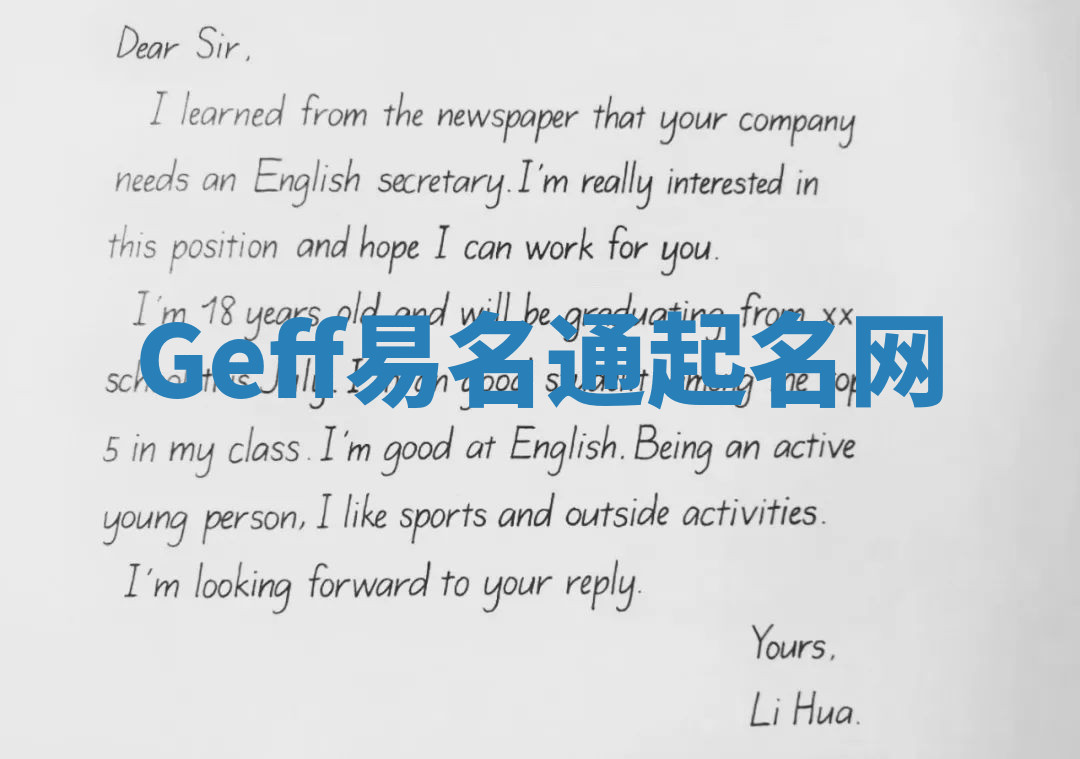 Dear Sir,
I learned from the newspaper that your company
needs an English secretary. I'm really interested in
this position and hope I can work for you.
I'm 18 years old and will be graduating from xx
Geff易名通起名网
school this July. I good student among the top
5 in my class. I'm good at English. Being an active
young person, I like sports and outside activities.
I'm looking forward to your reply.
Yours,
Li Hua.